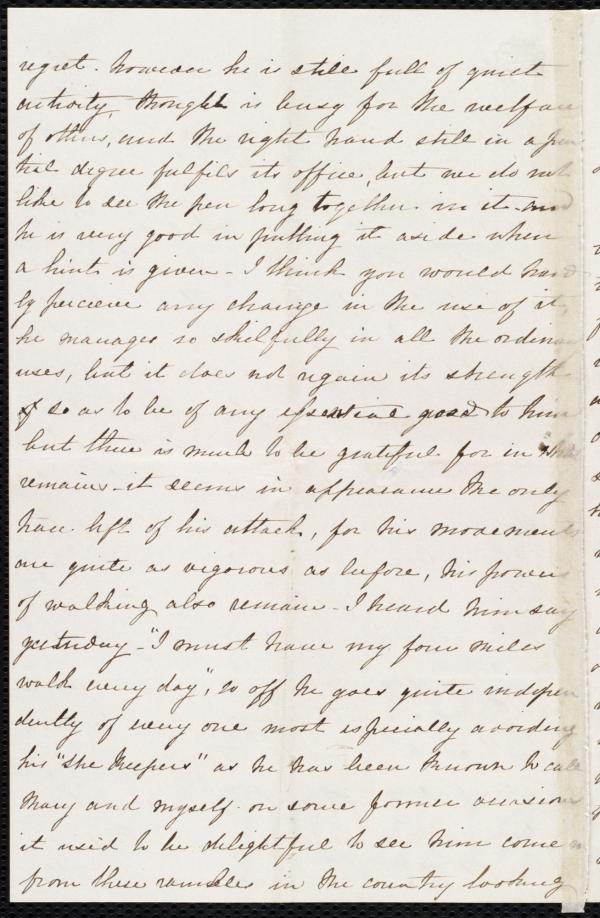 regret. however he is still full of quiet
activity, thought is busy for the welfare
of others, and the right hand still in a par
tial degree fulfils its office, but we do not
like to see the pen long together in it and
he is very good in putting it aside when
a hint is given - I think you would hard
ly perceive any change in the use of it,
he manages so skilfully in all the ordinary
uses, but it does not regain its strength
so as to be of any essential good to him
but there is much to be grateful for in what
remains - it seems in appearance the only
trace left of his attack, for his movements
are quite as vigorous as before, his powers
of walking also remain - I heard him say
yesterday - "I must have my four miles
walk every day", so off he goes quite indepen
dently of every one most especially avoiding
his "she keepers" as he has been known to call
Mary and myself on some former occasions
it used to be delightful to see him come in
from these rambles in the country looking